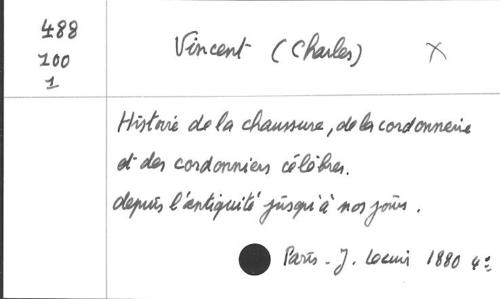 488
100
1
Vincent (Charles) X
Histoire de la chaussure, de la cordonnerie
et des cordonniers célèbres.
depuis l'antiquité jusqu'à nos jours.
Paris - J. 1880 4º